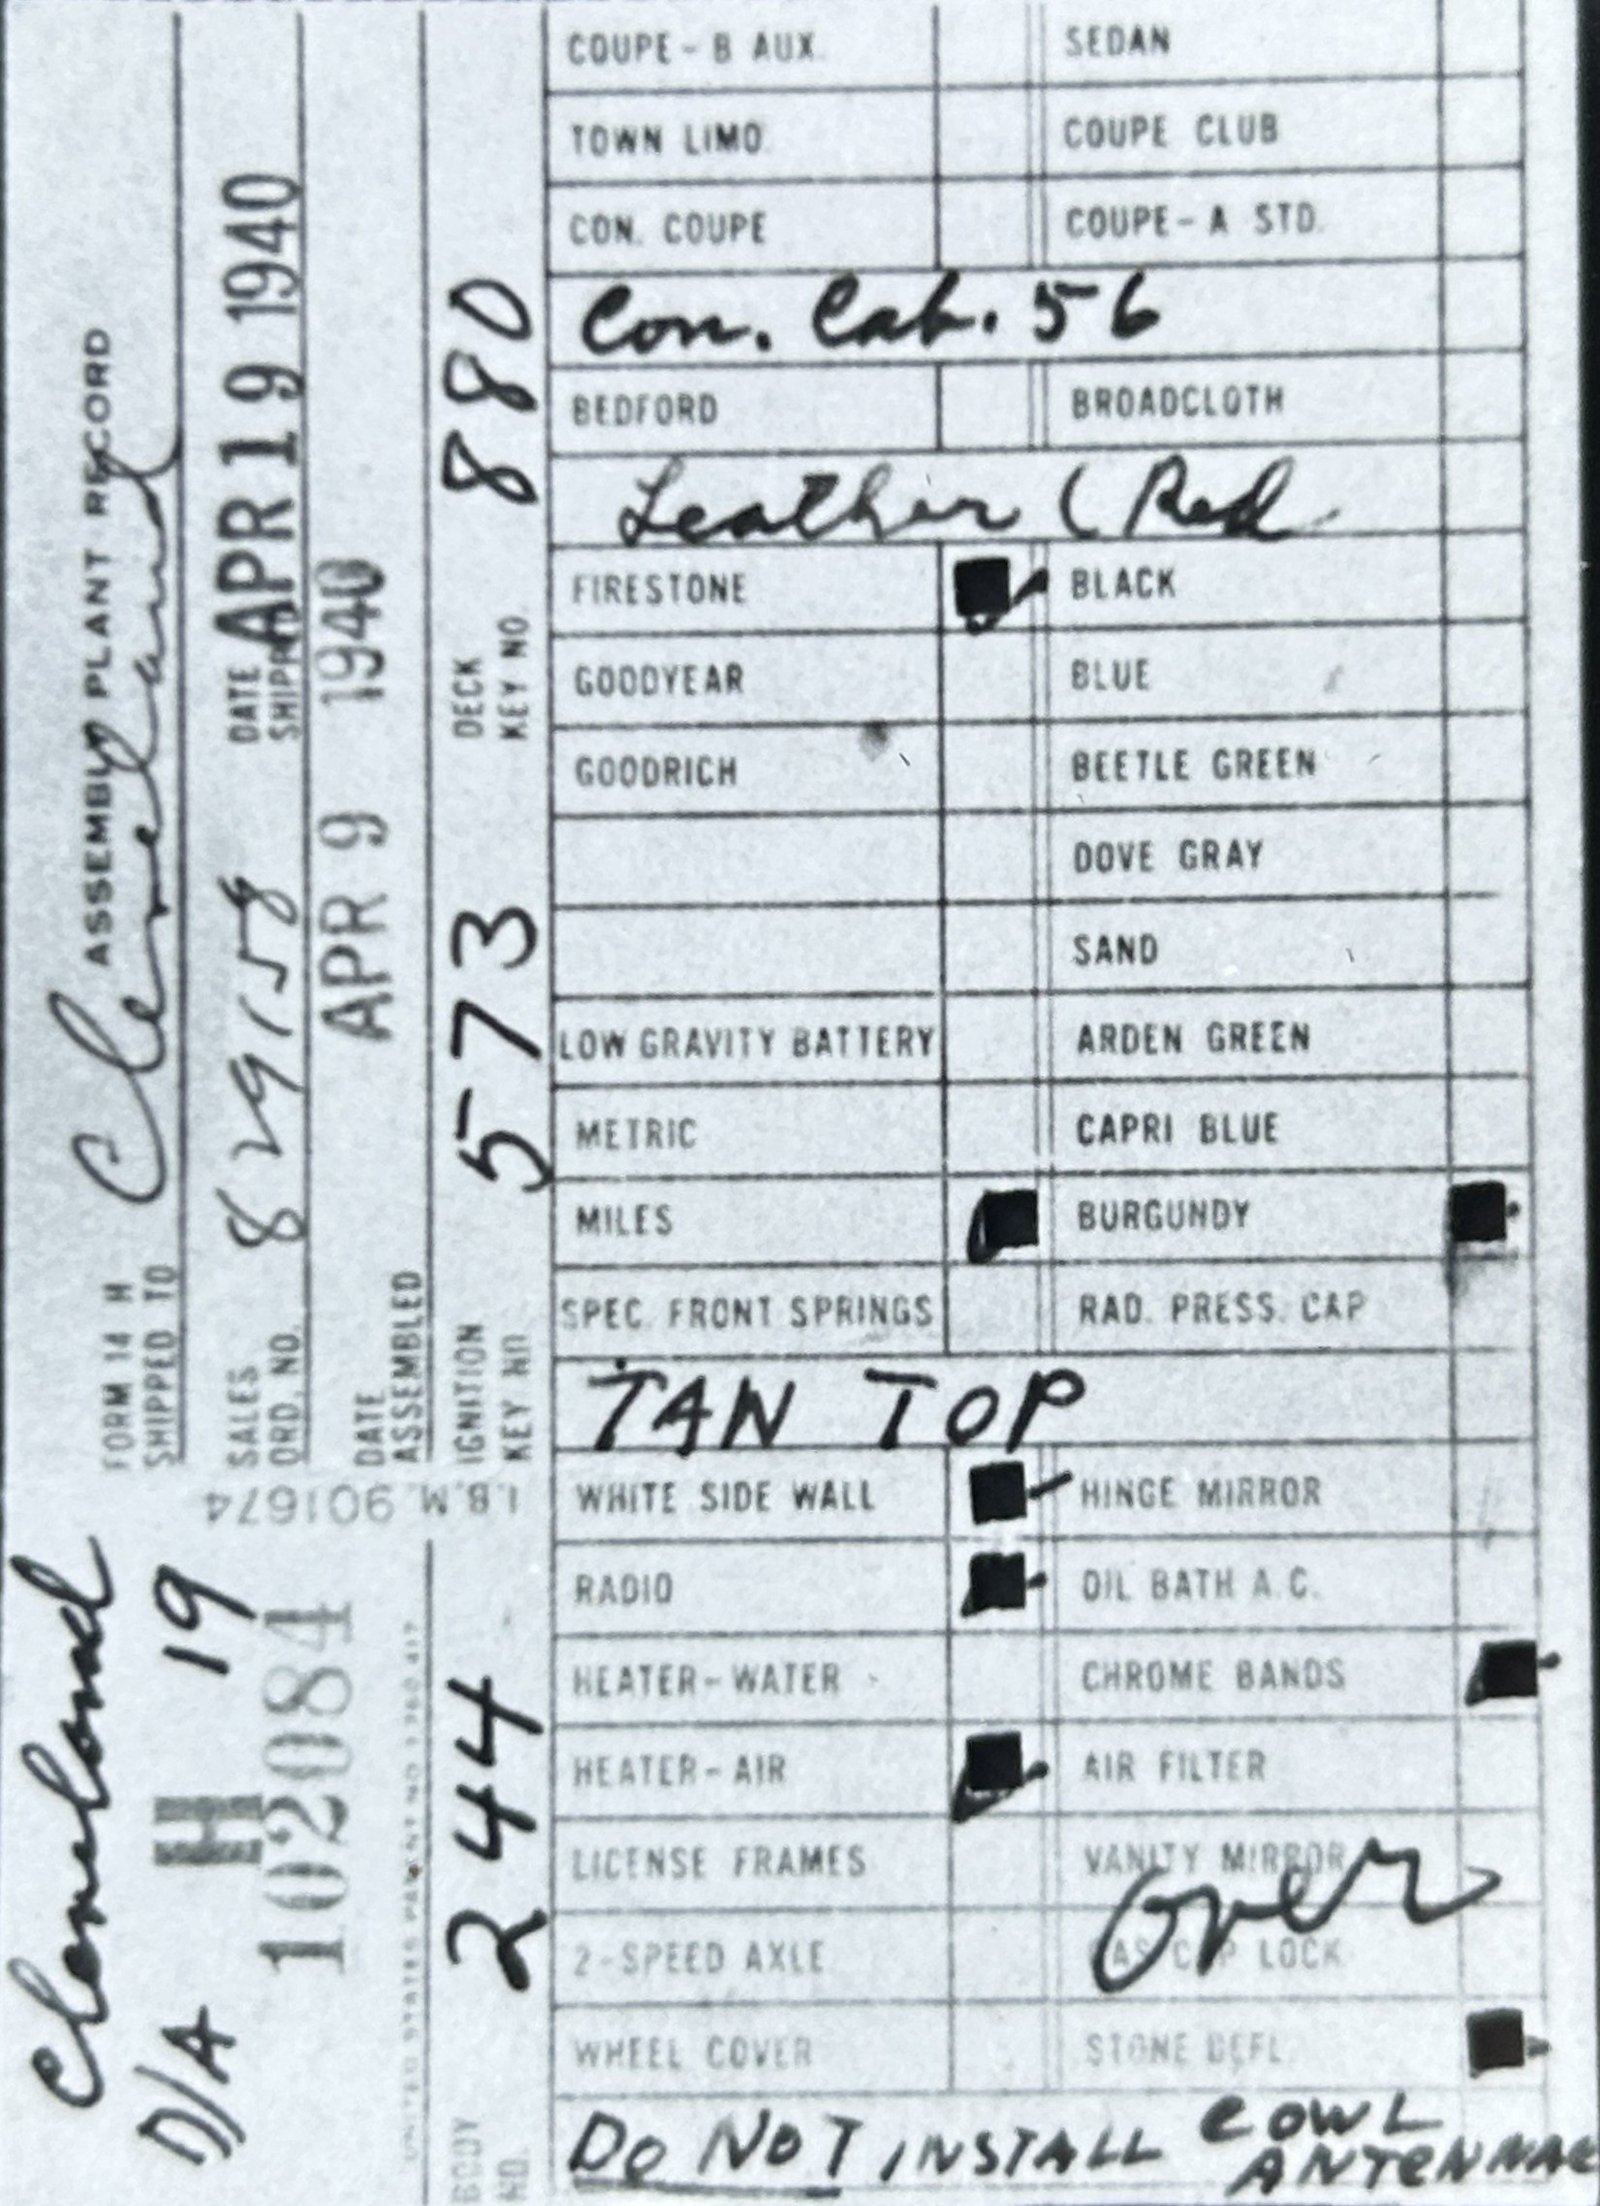 FORM 14 H
ASSEMBLY PLANT RECORD
SHIPPED TO Cleveland
SALES ORD. NO. 829158
DATE SHIPPED APR 19 1940
DATE ASSEMBLED APR 9 1940
IGNITION KEY NO 573
DECK KEY NO. 880
I.B.M. 901674
Cleveland
D/A H 19
102084
BODY NO. 244
COUPE - B AUX. SEDAN
TOWN LIMO. COUPE CLUB
CON. COUPE COUPE - A STD.
Con. Cab. 56
BEDFORD BROADCLOTH
Leather (Red
FIRESTONE BLACK
GOODYEAR BLUE
GOODRICH BEETLE GREEN
DOVE GRAY
SAND
LOW GRAVITY BATTERY ARDEN GREEN
METRIC CAPRI BLUE
MILES BURGUNDY
SPEC. FRONT SPRINGS RAD. PRESS. CAP
TAN TOP
WHITE SIDE WALL HINGE MIRROR
RADIO OIL BATH A.C.
HEATER - WATER CHROME BANDS
HEATER - AIR AIR FILTER
LICENSE FRAMES VANITY MIRROR
over
2 - SPEED AXLE GAS CAP LOCK
WHEEL COVER STONE DEFL.
DO NOT INSTALL COWL
ANTENNAE